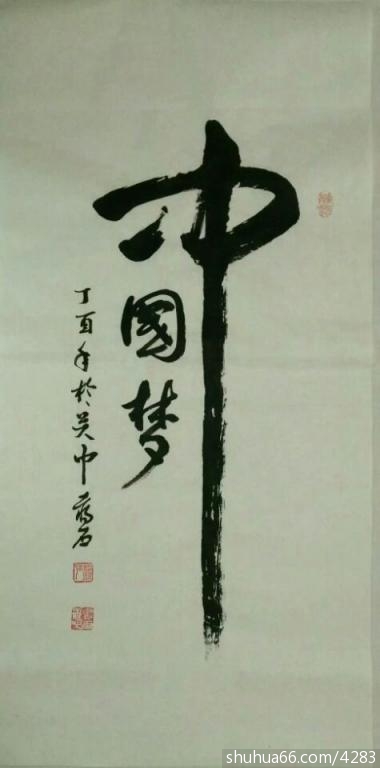 中
國梦
丁酉年於吴中
shuhua66.com/4283